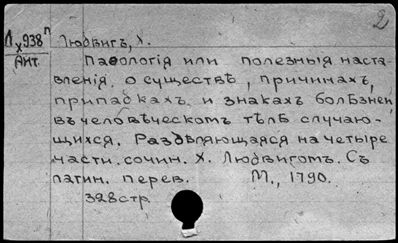 2
Л х938 п
Ант.
Людвигъ, Х.
Паѳологія или полезныя наста-
вленія о существѣ, причинахъ,
припадкахъ и знакахъ болѣзней
въ человѣческомъ тѣлѣ случаю-
щихся. Раздѣляющаяся на четыре
части. сочин. Х. Людвигомъ. Съ
латин. перев. М., 1790.
328стр.